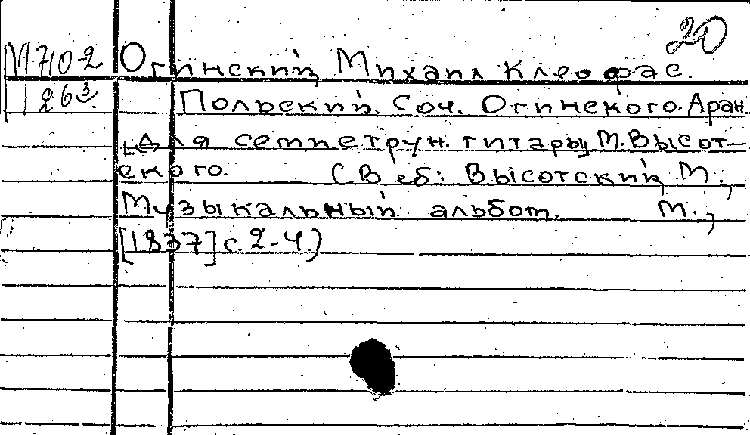 20
М710-2 Огинский, Михаил Клеофас.
263 Польский. Соч. Огинского. Аран.
для семиструн. гитары М. Высот-
ского. (В сб: Высотский, М.,
Музыкальный альбом. М.,
[1837] с. 2-4)